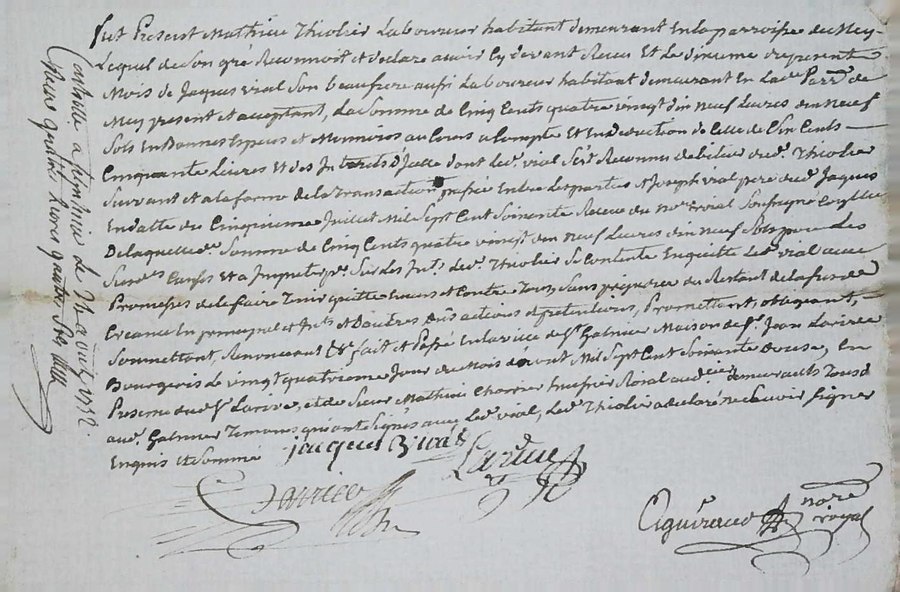 fut Present Mathieu Thiolier Laboureur habitant demeurant En la parroisse de Mey-
Lequel de Son gré Reconnoit et declare avoir Cy devant Receu Et Le dixieme du present
Mois de Jaques vial Son beaufrere aussi Laboureur habitant demeurant En Lad. Parr.
Mey present et acceptant, La Somme de Cinq Cents quatre vingt dix Neuf Livres dix Neuf
Sols En Bonnes Especes et Monnoies au Cours a Compte Et En deduction de Celle de Six Cents
Cinquante Livres Et des Interets d'Icelle dont led. vial S'est Reconnu debiteur aud. Thiolier
Suivant et a la forme de la transaction passée Entre les parties et Joseph vial pere dud. Jaques
En datte du Cinquieme Juillet Mil Sept Cent Soixante Receue du no.re royal Soussigné
De laquelle d. Somme de Cinq Cents quatre vingt dix Neuf Livres dix Neuf Sols
Sur les Int.s Led. Thiolier Se Contente En quitte Led. vial avec
Promesses de le faire Tenir quitte Envers et Contre Tous, Sans prejudice du Restant de la
Creance En principal et Int.s et D'autres actions et pretentions, Promettant, obligeant,
Soumettant, Renonceant &c fait et Passé En la ville de S.t Galmier Maison de S.r Jean Larive
Bourgeois Le vingt quatrieme Jour du Mois d'aout Mil Sept Cent Soixante Douze, En
Presence dud. S.r Larive, et de Sieur Mathieu Charrier huissier Royal aud. demeurants Tous d
aud. Galmier Temoins qui ont Signés avec Led. vial, Led. Thiolier a declaré ne Scavoir Signer
Enquis Et Sommé
jaques Vial
Larive
Charrier
Aguiraud no.re royal
Controllé a S.t Galmier le 1772.
Receu quatre Livres quatre Sols